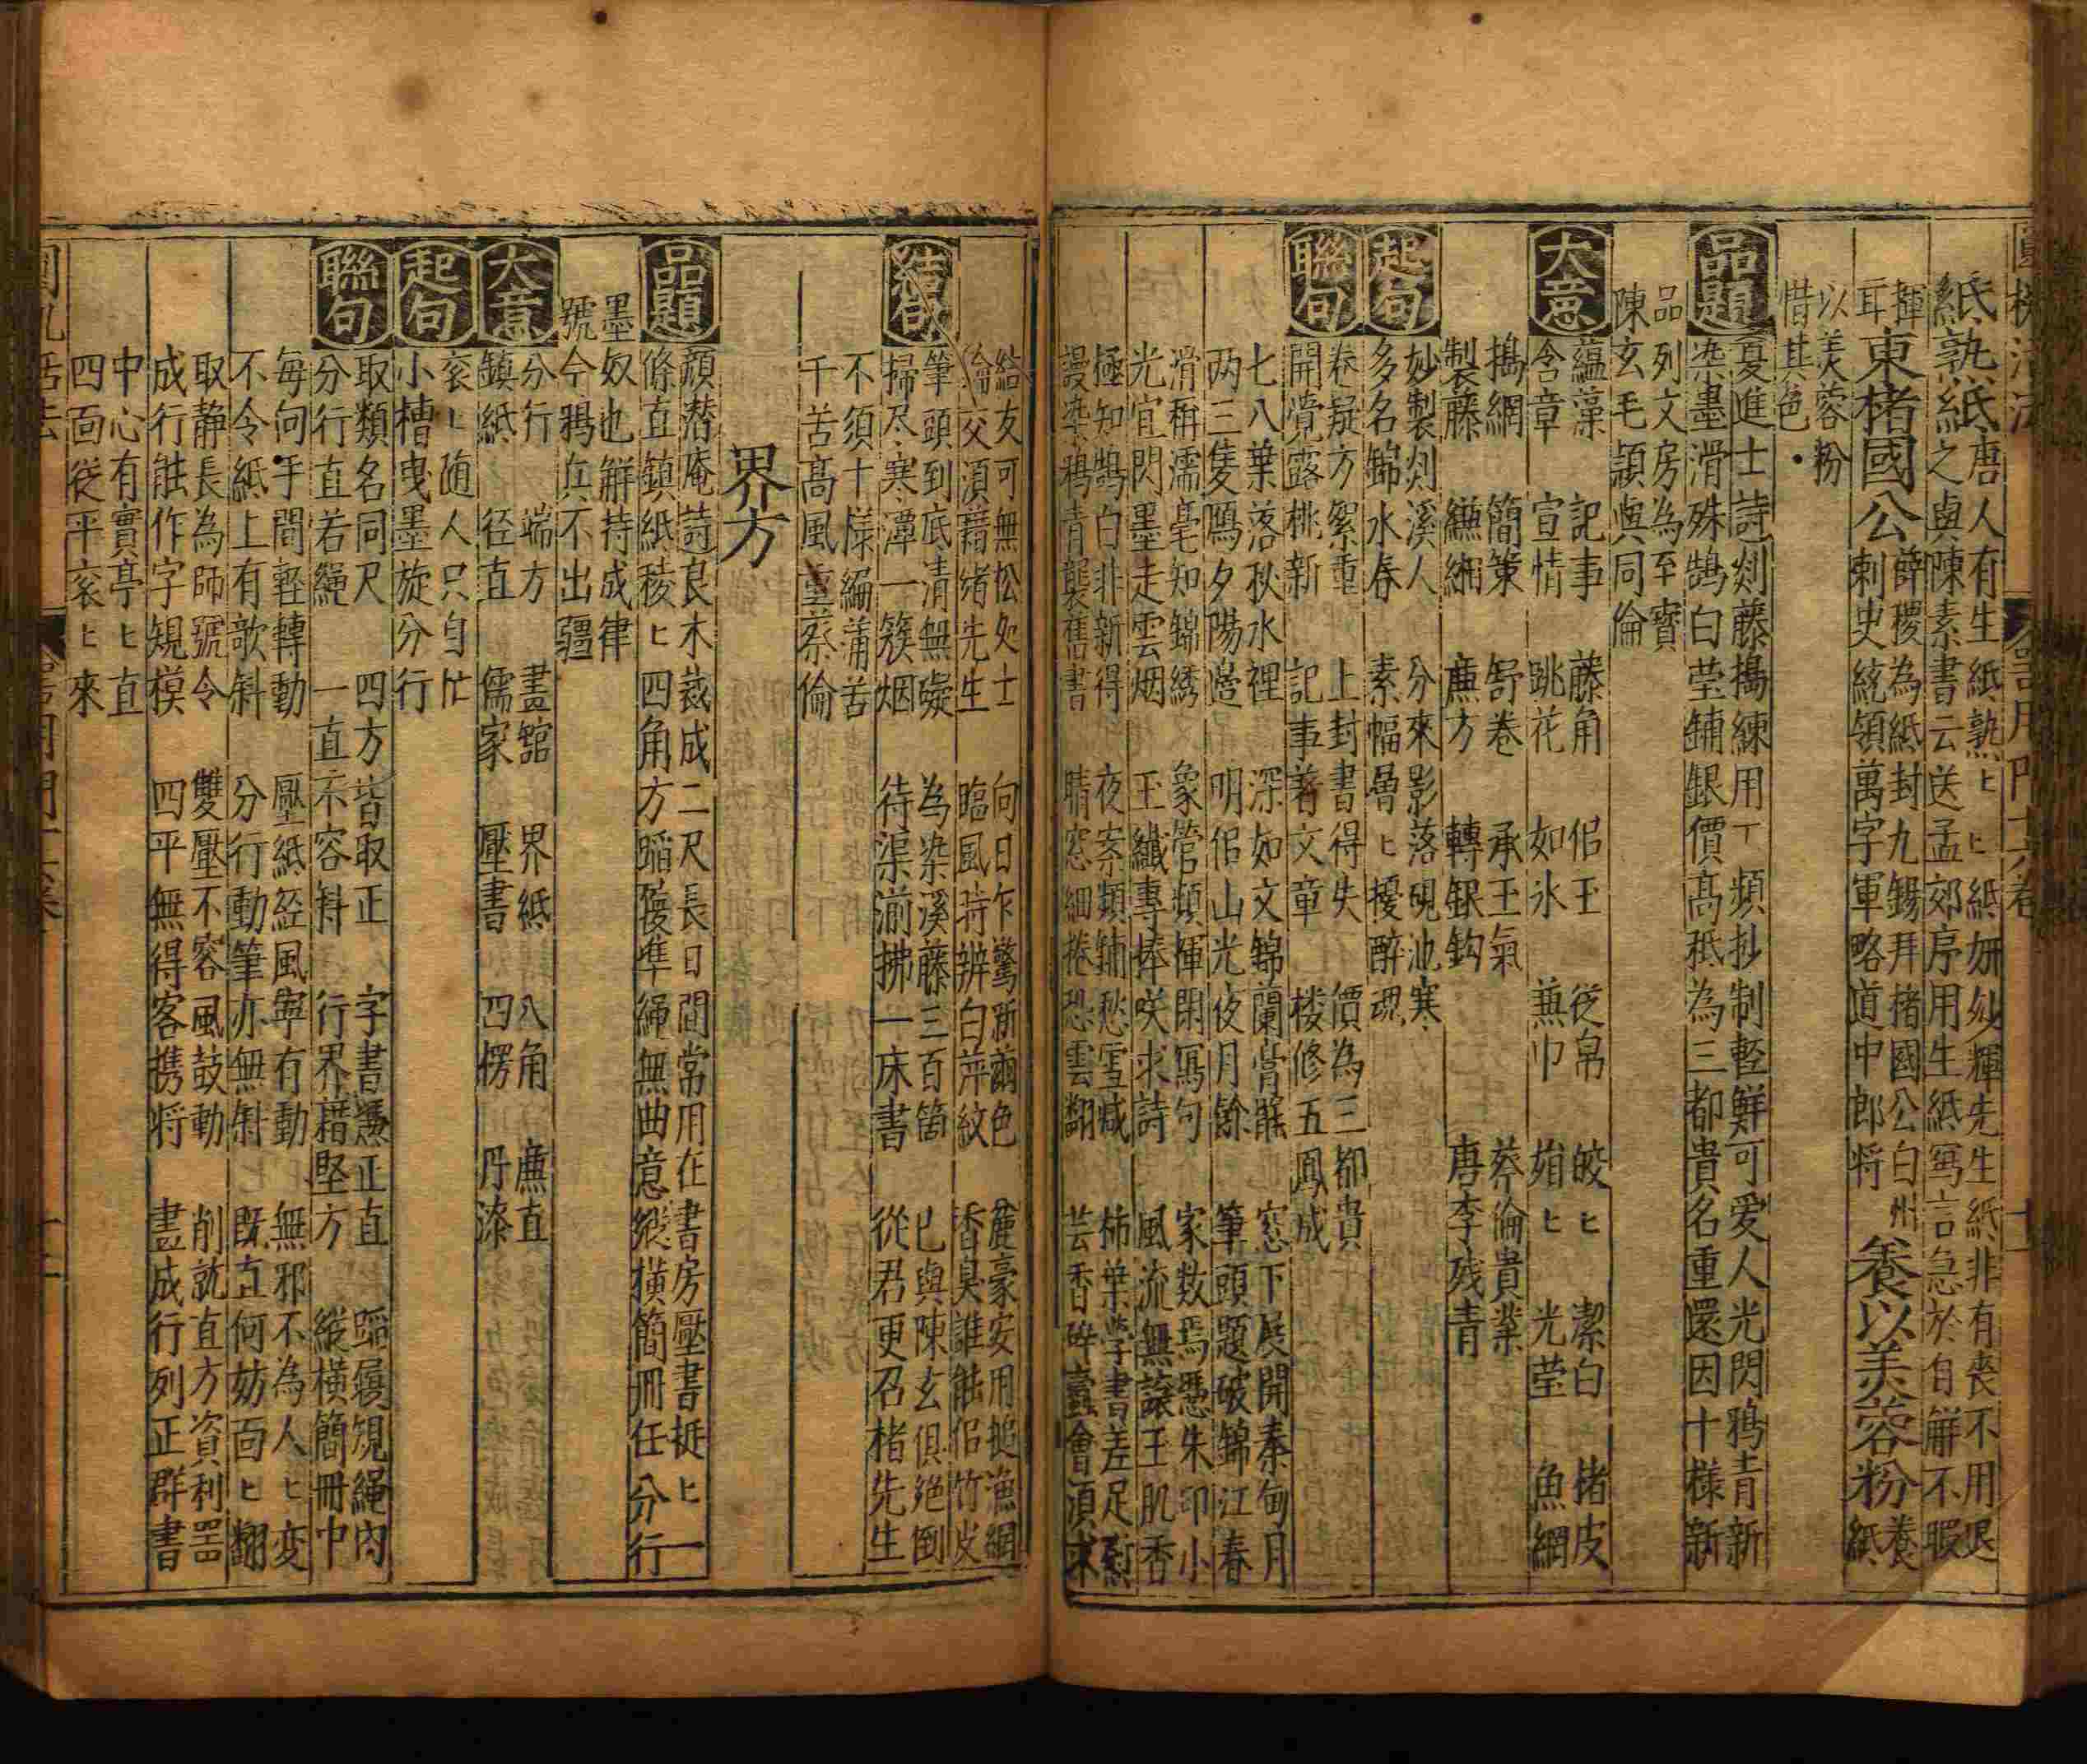 圓機活法
器用門十六卷
紙熟紙唐人有生紙熟ヒヒ紙妍妙輝先生紙非有喪不用退
之與陳素書云送孟郊序用生紙寫言急於自解不暇
擇
耳
東楮國公
薛稷為紙封九錫拜楮國公白州
刺史統領萬字軍略道中郎将
養以芙蓉粉
養紙
以芙蓉粉
惜其色
品題
夏進士詩剡藤搗練用丁頻抄制輕鮮可爱人光閃鴉青新
染墨滑殊鵠白莹鋪銀價髙秪為三都貴名重還因十様新
品列文房為至寳
陳玄毛頴與同倫
大意
蘊藻 記事 藤角 侣玉 従帛 皎ヒ 潔白 楮皮
含章 宣情 跳花 如氷 兼巾 光莹 魚網
搗網 簡策 舒卷 承王氣 蔡倫貴業
製藤 縑緗 亷方 轉銀鈎 唐李残青
起句
妙製剡溪人 分來影落硯池寒
多名錦水春 素幅曡ヒ擾醉
卷疑方絮重 上封書得失 價為三都貴
聯句
開覺露桃新 記事著文章 楼修五鳳成
七八葉落秋水裡 深如文錦蘭膏 窓下展開秦甸月
两三隻鴈夕陽邉 明侣山光夜月餘 筆頭題破錦江春
滑稱濡毫知錦綉 象管頻揮閑寫句 家数焉憑朱印小
光宜閃墨走雲烟 玉纖專捧咲求詩 風流無譲玉肌香
極知鵠白非新得 夜案類鋪愁雪 柿葉學書差足慰
謾染鴉青襲舊書 晴窓細捲恐雲翻 芸香碎蠹會須求
結句
結友可無松処士 向日乍驚 色 麄豪安用搥漁網
論交須藉緒先生 臨風時辨白萍紋 香臭誰能侣竹皮
筆頭到底清無礙 為染溪藤三百箇 已與陳玄俱絶倒
掃尽寒潭一簇烟 待渠湔拂一床書 從君更召楮先生
不須十様編蒲苦
千苦髙風重蔡倫
界方
品題
顔潜庵詩良木裁成二尺長日間常用在書房壓書挺ヒ一
條直鎮紙稜ヒ四角方蹈 準繩無曲意縱横簡冊任分行
墨奴也觧持成律
號令鴉兵不出疆
大意
分行 端方 畫舘 界紙 八角 亷直
鎮紙 径直 儒家 壓書 四楞 丹漆
起句
衮ヒ随人只自忙
小槽曳墨旋分行
取類名同尺 四方皆取正 字書慿正直 蹈 規繩内
聯句
分行直若繩 一直不容斜 行界藉堅方 縱横簡冊中
毎向手間輕轉動 壓紙経風寧有動 無邪不為人ヒ変
不令紙上有歌斜 分行動筆亦無斜 既直何妨面ヒ翻
取静長為師號令 雙壓不客風鼓動 削就直方資利噐
成行能作字規模 四平無得客携将 畫成行列正群書
中心有實亭ヒ直
四面従平衮ヒ來